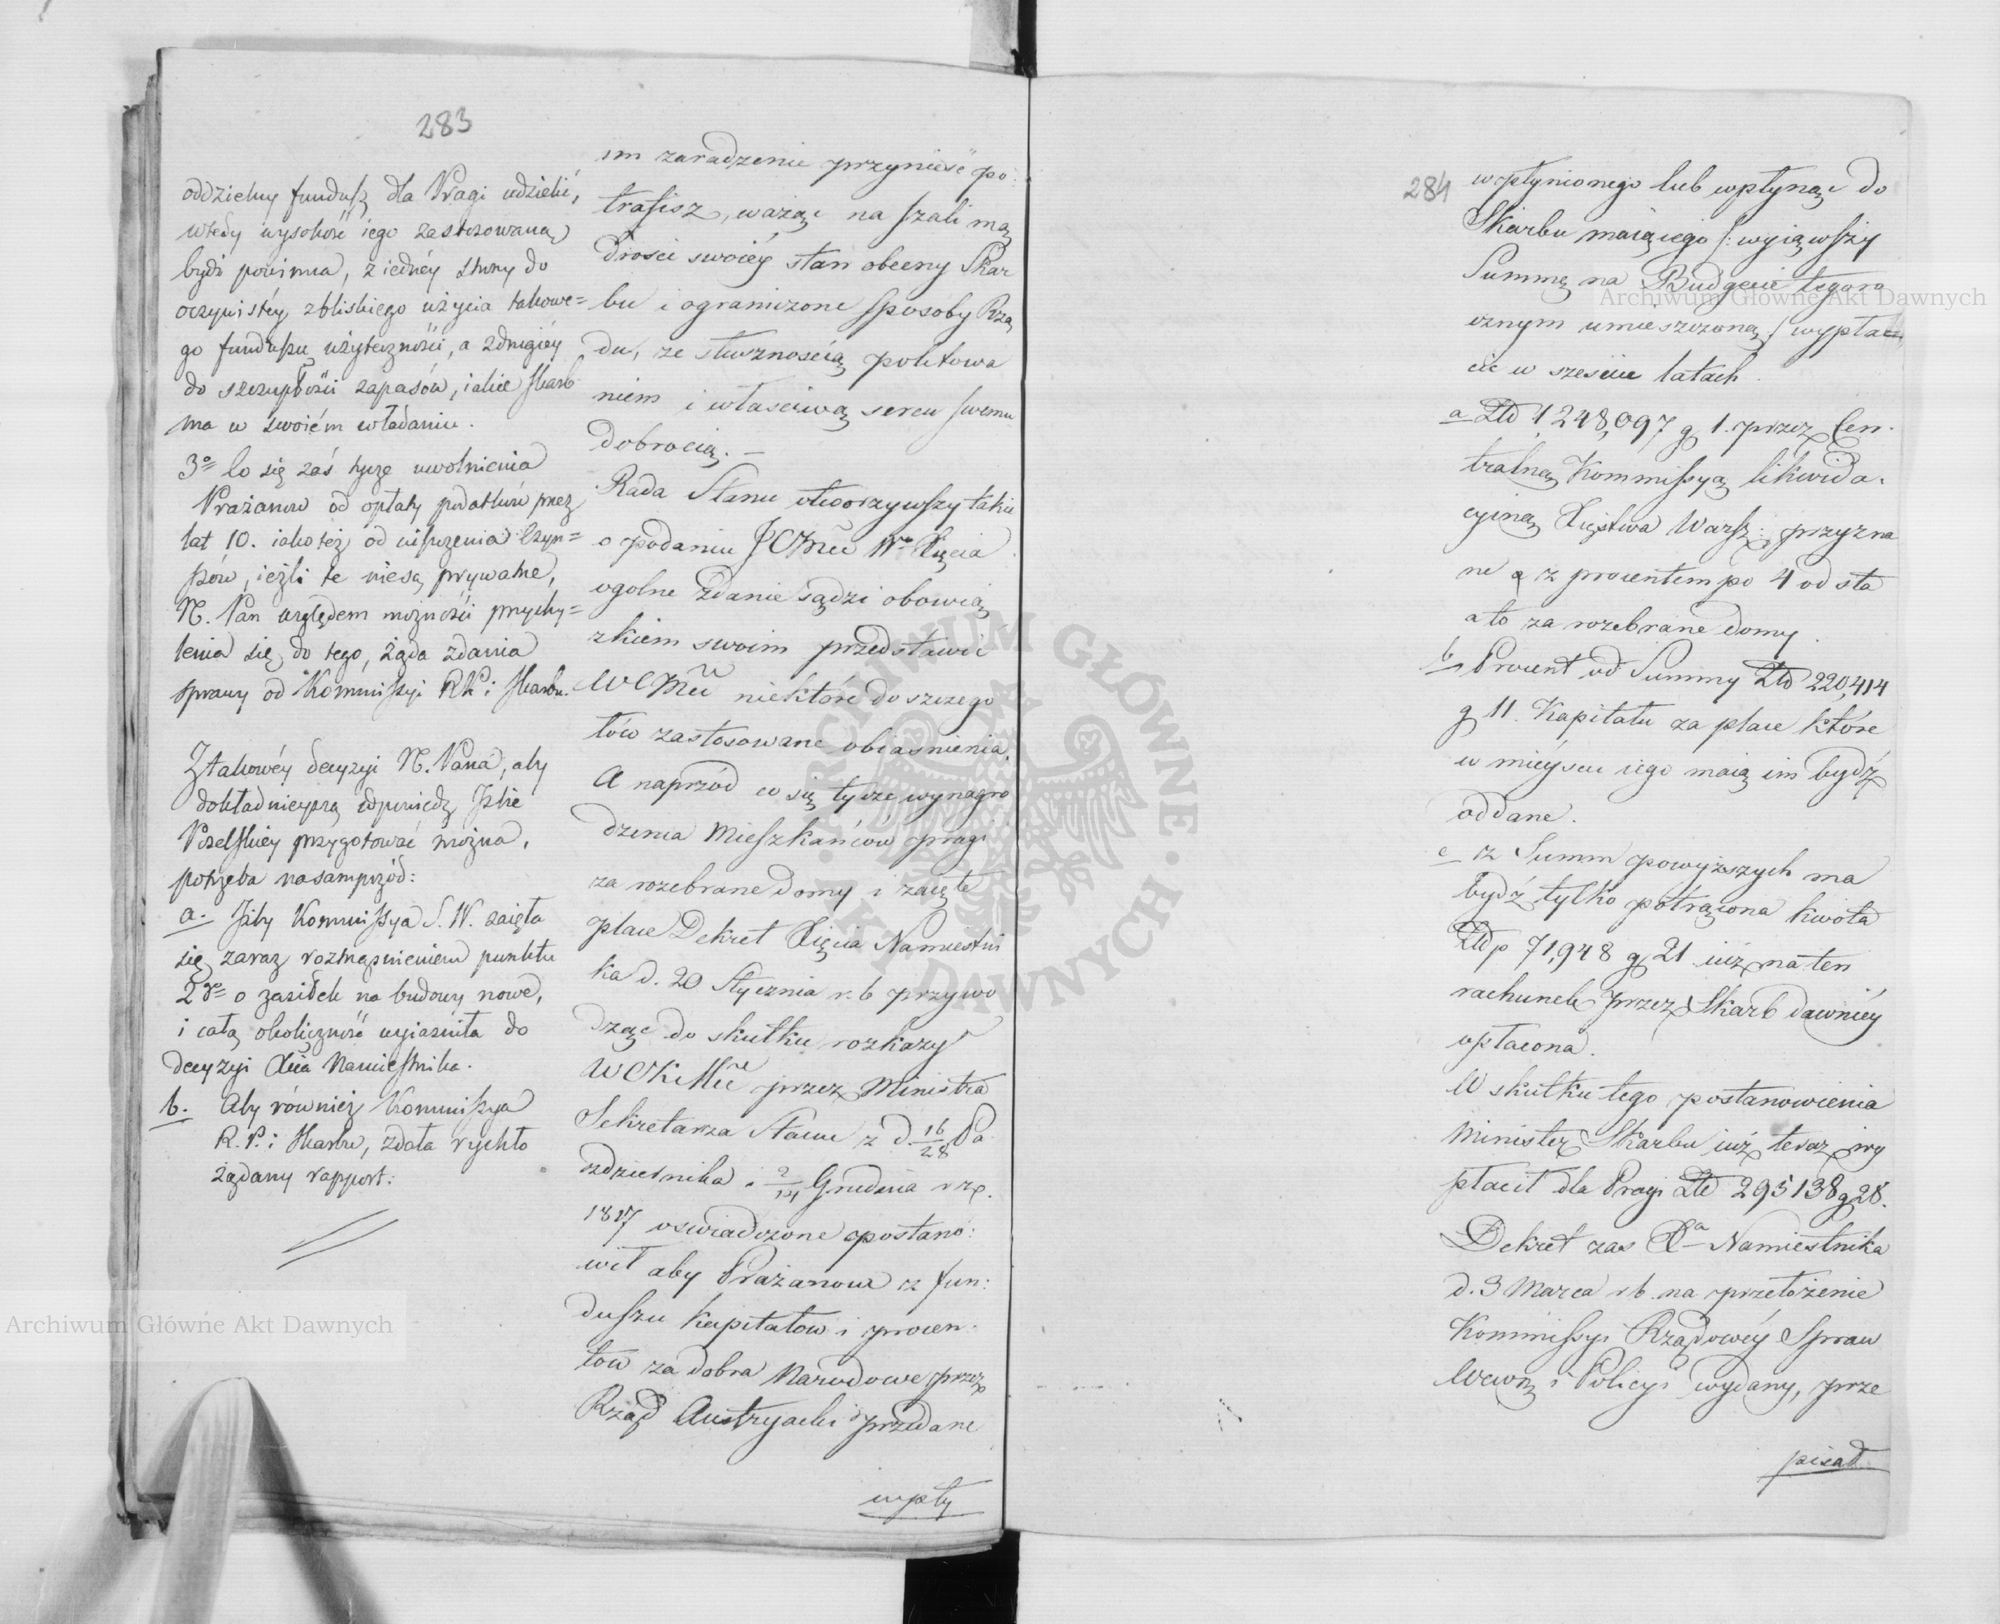 283
oddzielny fundusz dla Pragi udzielić,
wtedy wysokość iego zastosowaną
bydź powinna, z iednéy strony do
oczywistéy z bliskiego użycia takowe=
go funduszu użyteczności, a z drugiéy
do szczupłości zapasów, iakie Skarb
ma w swoiém władaniu.
3o Co się zaś tycze uwolnienia
Prażanów od opłaty podatków przez
lat 10. iako téż od uiszczenia Czyn=
szów, ieżli te niesą prywatne,
N. Pan względem możności przychy=
lenia się do tego, żąda zdania
sprawy od Kommissyi R.P. i Skarbu.
Z takowéy decyzyi N. Pana, aby
dokładnieyszą odpowiedź Izbie
Poselskiéy przygotować można,
potrzeba nasamprzód:
a. Iżby Kommissya S. W. zaięła
się zaraz roztrząśnieniem punktu
2go o zasiłek na budowy nowe,
i całą okoliczność wyiaśniła do
decyzyi Xcia Namiestnika.
b. Aby również Kommissya
R. P. i Skarbu, zdała rychło
żądany rapport.
im zaradzenie przynieść po:
trafisz, ważąc na szali mą
drości swoiéy stan obecny Skar
bu i ograniczone sposoby Rzą
du, ze słusznością politowa
niem i właściwą sercu swemu
dobrocią. —
Rada Stanu otworzywszy takie
o podaniu JCKMci Wo Xięcia
ogolne zdanie sądzi obowią
zkiem swoim przedstawić
WCKMci niektóre do szczego
łów zastosowane obiaśnienia.
A naprzód co się tycze wynagro
dzenia Mieszkańców pragi
za rozebrane domy i zaięte
place Dekret Xięcia Namiestni
ka d. 20 Stycznia r. b przywo
dząc do skutku rozkazy
WCKMci przez Ministra
Sekretarza Stanu z d 16/28 Pa
zdziernika i 2/14 Grudnia r z.
1817 oswiadczone postano:
wił aby Prażanom z fun:
duszu kapitałow i procen:
tow za dobra Narodowe przez
Rząd Austryacki przedane
wpły
284
wpłynionego lub wpłynąć do
Skarbu maiącego /: wyiąwszy
Summę na Budgecie tegoro
cznym umieszczoną :/ wypłac
ić w sześciu latach.
a Złd 1,248,097 g 1. przez Cen:
tralną Kommissyą likwida:
cyiną Xięstwa Warsz: przyzna
ne z procentem po 4 od sta
a to za rozebrane domy.
b Procent od Summy Złd 220,414
g 11. Kapitału za place które
w mieyscu iego maią im bydź
oddane.
c z Summ powyższych ma
bydź tylko potrącona kwota
Złp 71,948 g 21 iuż na ten
rachunek przez Skarb dawniéy
opłacona.
W skutku tego postanowienia
Minister Skarbu iuż teraz wy
płacił dla Pragi Złd 295138 g 28.
Dekret zas Xa Namiestnika
d. 3 Marca r b. na przełożenie
Kommissyi Rządowéy Spraw
Wewnę i Policyi wydany, prze
pisał
Archiwum Główne Akt Dawnych
Archiwum Główne Akt Dawnych
ARCHIWUM GŁÓWNE AKT DAWNYCH